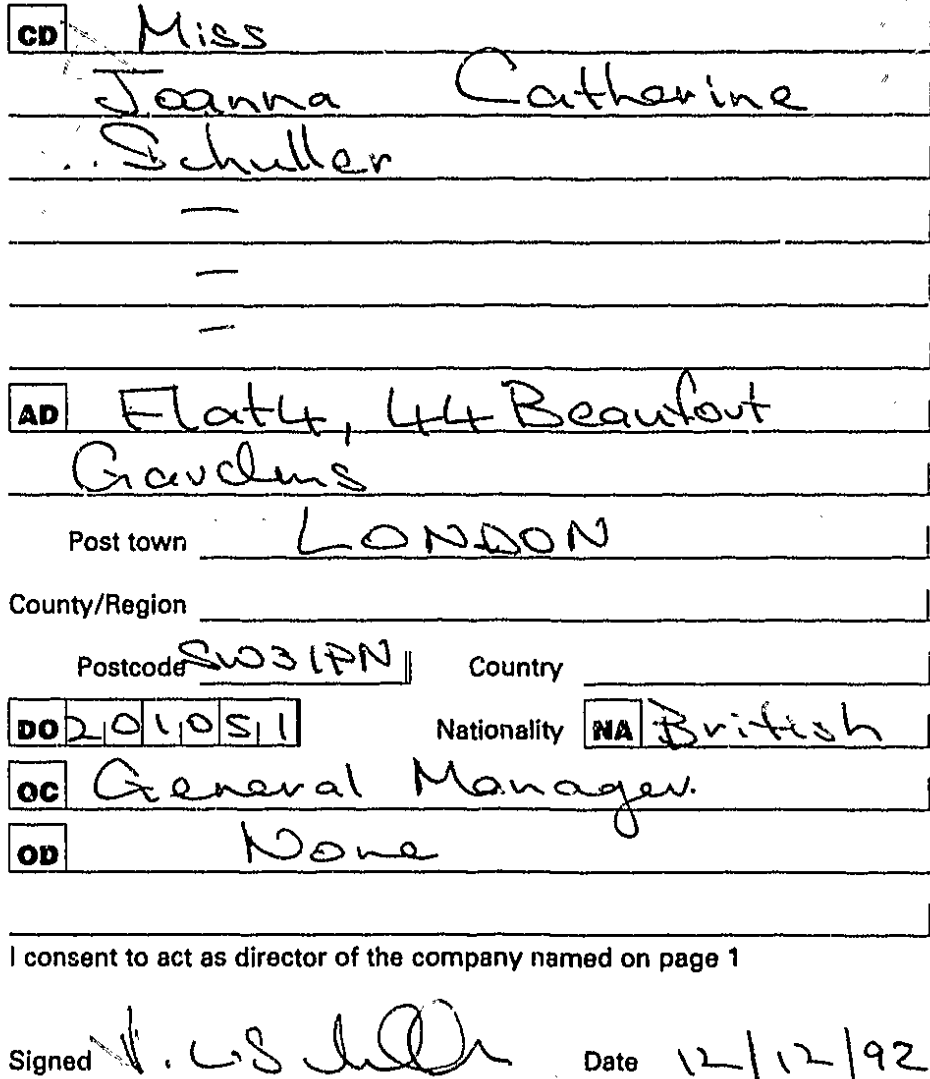 CD Miss
Joanna Catherine
Schuller
—
—
—
AD Flat 4, 44 Beaufort
Gardens
Post town LONDON
County/Region
Postcode SW3 1PN Country
DO 20 10 51 Nationality NA British
OC General Manager.
OD None
I consent to act as director of the company named on page 1
Signed J. C. Schuller Date 12/12/92